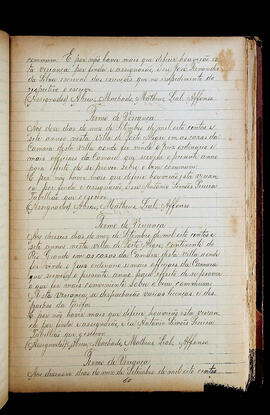 commum. E por não haver mais que deferir houverão es-
ta vereança por finda e assignarão, eu José Fernandes
da Silva escrivão das execuções que no impedimento do
respectivo o escrevi.
(Assignados) Abreu, Machado, Matheus, Leal, Affonso.
Termo de Vereança
Aos dous dias do mez de Setembro de mil sete centos e
sete annos nesta villa de Porto Alegre em as casas da
Camara desta villa aonde foi vindo o juiz ordinario e
mais officiaes da Camara que servem o presente anno
para effeito de se prover sobre o bem commum.
E por não haver mais que deferir houverão esta verean-
ça por finda e assignarão, e eu Antonio
Tabellião que o escrevi.
(Assignados) Abreu, Matheus, Leal, Affonso.
Termo de Vereança
Aos dias do mez de Setembro de mil sete centos e
sete annos nesta villa de Porto Alegre, continente do
Rio Grande em as casas da Camara desta villa aonde
foi vindo o juiz ordinario e mais officiaes da Camara
que servem o presente anno para effeito de se prover o
que for mais conveniente sobre o bem commum.
Nesta vereança se despacharão varias licenças e des-
pachos de
E por não haver mais que deferir houverão esta verean-
ça por finda e assignarão, e eu Antonio
Tabellião que o escrevi.
(Assignados) Abreu, Machado, Matheus, Leal, Affonso
Termo de Vereança
Aos dias do mez de Setembro de mil sete centos